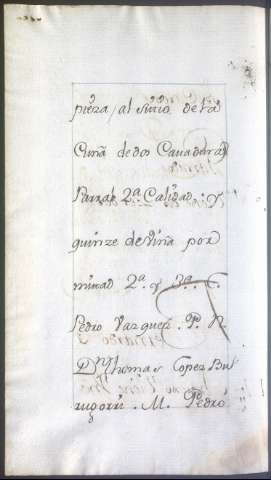 pieza, al sitio de la
Cuña de dos Cavaduras
Parral 2ª Calidad. y
quinze de Viña por
mitad 2ª. y 3ª. C.
Pedro Vazquez. P. N.
Dn. Thomas Lopez Bul
rugorri. M. Pedro